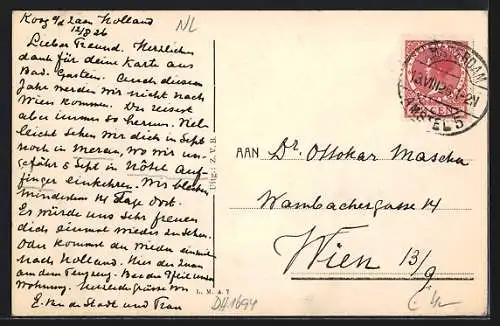 Koog a/d Zaan Holland
12/8 26
Lieber Freund. Herzlichen
dank für deine Karte aus
Bad. Gastein. Auch diesem
Jahr werden wir nicht nach
Wien kommen. Du reisest
aber immer so herum. Viel-
leicht sehen wir dich in Sept
noch in Meran, wo wir un-
gefähr 5 Sept in Hôtel Auf-
finger einkehren. Wir bleiben
mindestens 14 Tage dort.
Es würde uns sehr freuen
dich einmal wieder zu sehen.
Oder kommst du wieder einmal
nach Holland. Hier der Zaan
aus dem Flugzeug. Bei der Pfeil unsere
Wohnung. Herzliche Grüsse von
E. van de Stadt und Frau
NL
Uitg.: Z. V. B.
L. M. A. 7
DH1694
AMSTERDAM
AMSTEL 5
AAN Dr. Ottokar Mascha
Wambachergasse 14
Wien 13/9